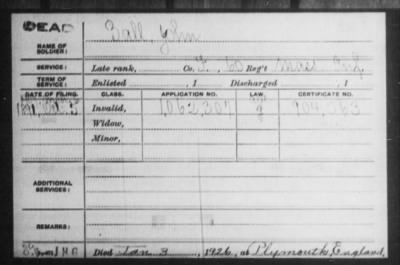 DEAD
NAME OF SOLDIER: Ball, John
SERVICE: Late rank, Co. F, 60 Reg't Mass Inf.
TERM OF SERVICE: Enlisted , 1 Discharged , 1
DATE OF FILING. CLASS. APPLICATION NO. LAW. CERTIFICATE NO.
Invalid, 1,062,307 g
Widow,
Minor,
ADDITIONAL SERVICES:
REMARKS:
Died Jan 3 , 1926, at Plymouth, England,